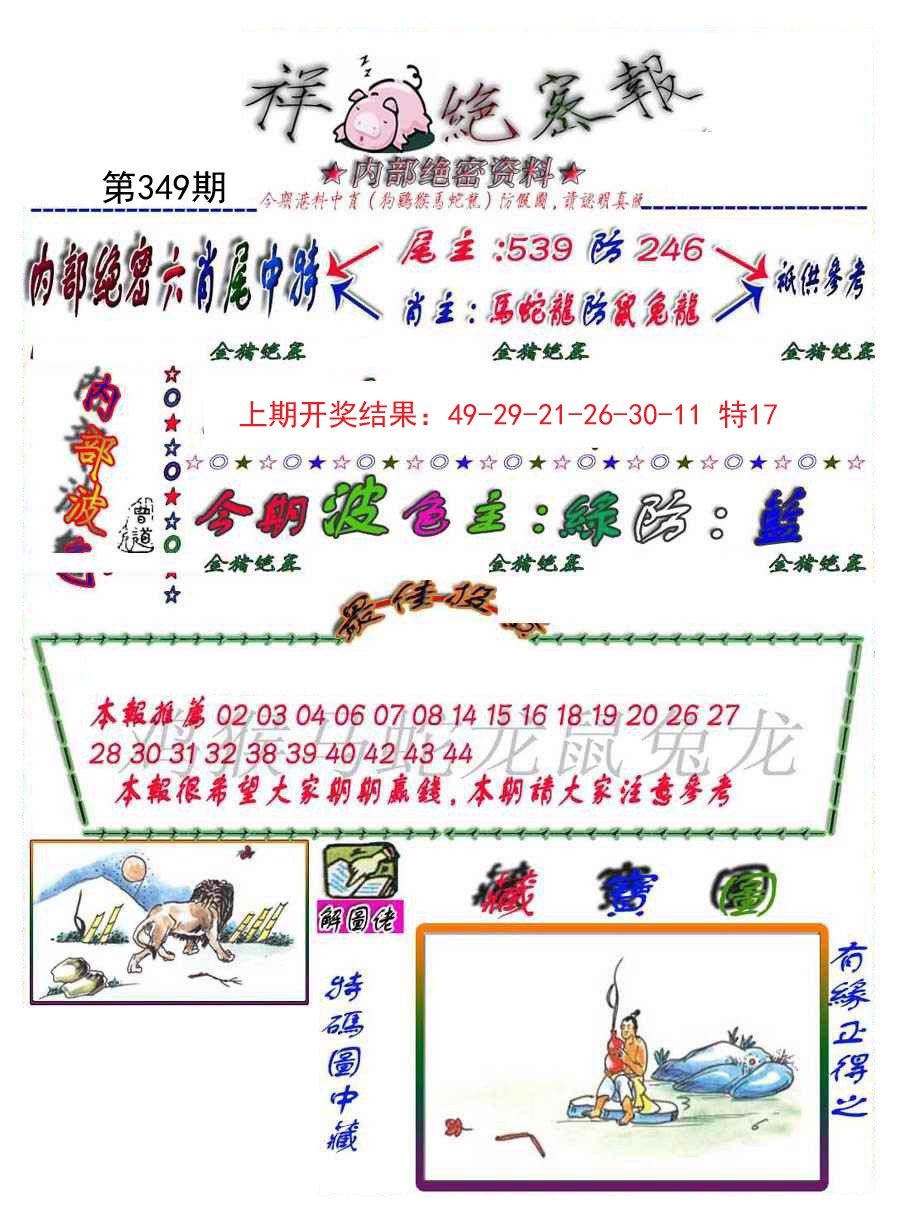 祥 絶密報
★内部绝密资料★
第349期
今期港料中肖(狗鷄猴馬蛇龍)防假圖,請認明真
内部绝密六肖尾中特
尾主:539 防 246
肖主:馬蛇龍防鼠兔龍
衹供參考
金猪绝密 金猪绝密 金猪绝密
内部波
曾道
上期开奖结果: 49-29-21-26-30-11 特17
☆○★☆○★☆○★☆○★☆○★☆○★☆○★☆○★☆○☆
今期波色主:綠防:藍
金猪绝密 金猪绝密 金猪绝密
最佳投
鸡猴马蛇龙鼠兔龙
本報推薦 02 03 04 06 07 08 14 15 16 18 19 20 26 27
28 30 31 32 38 39 40 42 43 44
本報很希望大家期期赢錢,本期請大家注意參考
解圖佬
藏寶圖
特碼圖中藏
有緣正得之